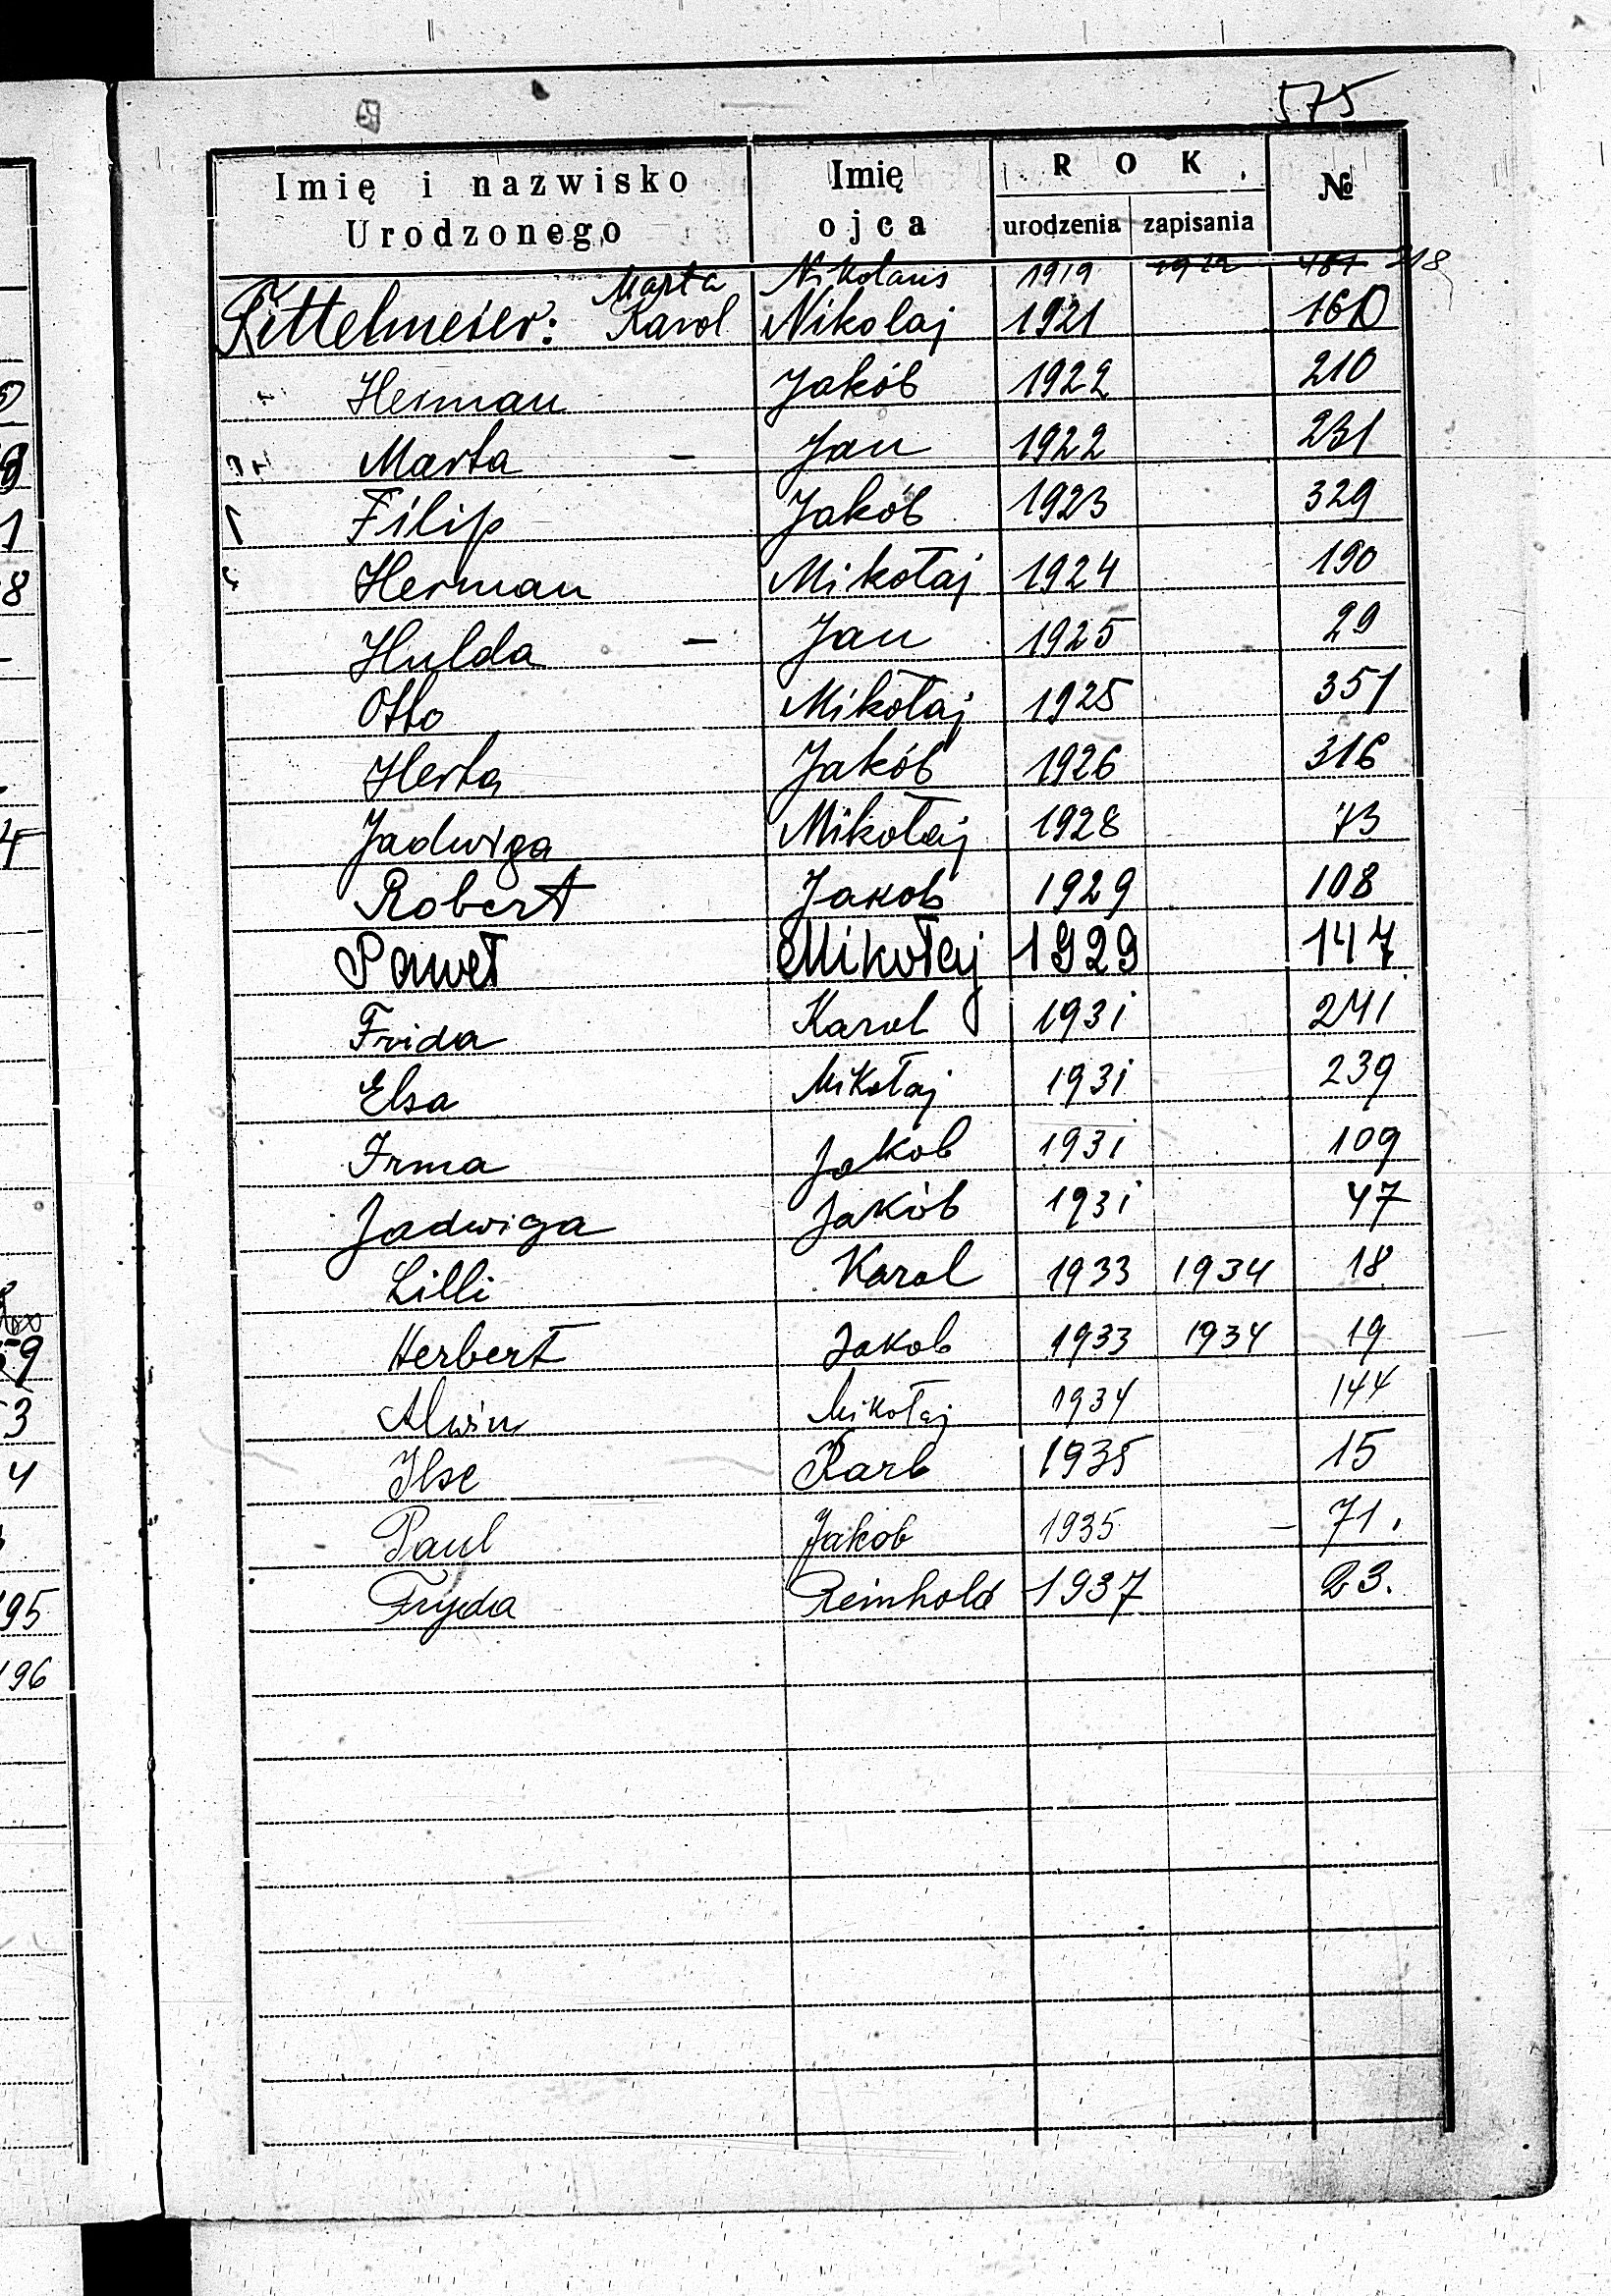 575
Imię i nazwisko Urodzonego Imię ojca ROK urodzenia zapisania №
Marta Nikolaus 1919 1922 481 218
Fittelmeier: Karol Nikolaj 1921 160
Herman Jakób 1922 210
Marta - Jan 1922 231
Filip Jakób 1923 329
Herman Mikołaj 1924 190
Hulda - Jan 1925 29
Otto Mikołaj 1925 351
Herta Jakób 1926 316
Jadwiga Mikołaj 1928 73
Robert Jakob 1929 108
Paweł Mikołaj 1929 147
Frida Karol 1931 241
Elsa Mikołaj 1931 239
Irma Jakob 1931 109
Jadwiga Jakób 1931 47
Lilli Karol 1933 1934 18
Herbert Jakob 1933 1934 19
Alwin Mikołaj 1934 144
Ilse Karl 1935 15
Paul Jakob 1935 - 71.
Fryda Reinhold 1937 23.
1
8
59
3
4
95
196